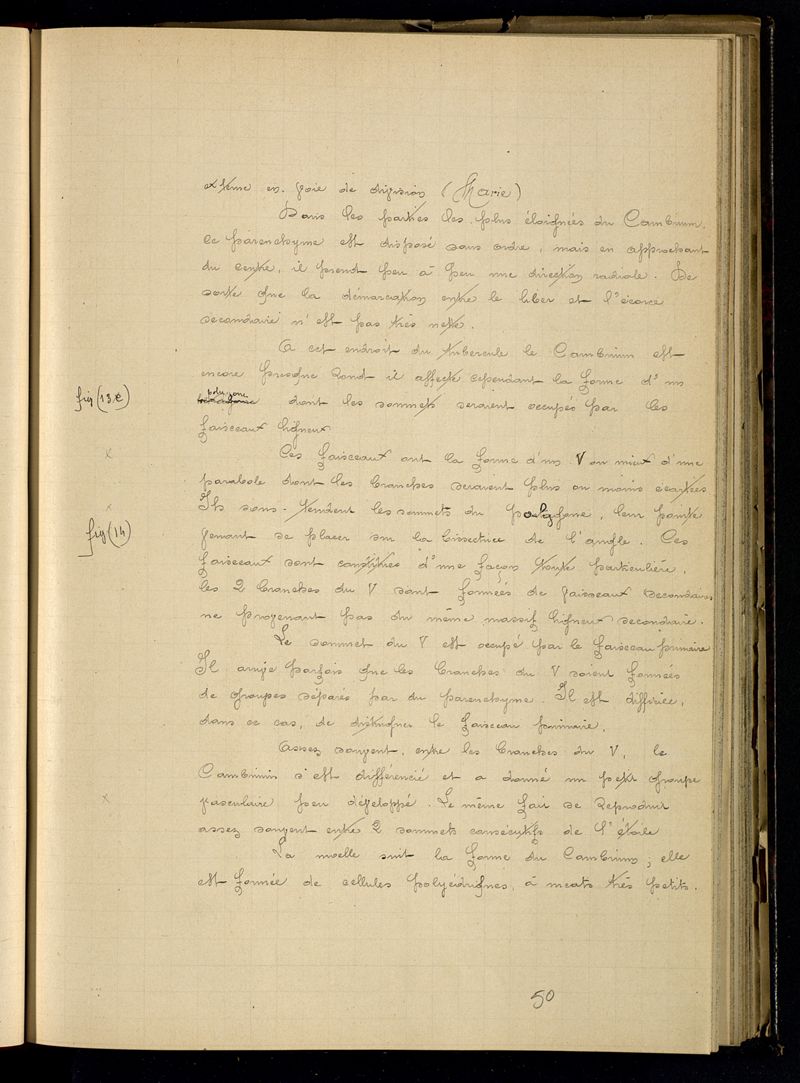 externe en voie de division (Marie)
Dans les parties les plus éloignées du Cambium,
ce parenchyme est disposé sans ordre, mais en approchant
du centre, il prend peu à peu une direction radiale. De
sorte que la démarcation entre le liber et l'écorce
secondaire n'est pas très nette.
A cet endroit du tubercule le Cambium est
encore presque rond il affecte cependant la forme d'un
fig (13 e)
polygone
dont les sommets seraient occupés par les
faisceaux ligneux
Ces faisceaux ont la forme d'un V ou mieux d'une
x
parabole dont les branches seraient plus ou moins écartées
Ils sous-tendent les sommets du polygone, leur pointe
x
fig (14)
venant se placer sur la bissectrice de l'angle. Ces
faisceaux sont constitués d'une façon toute particulière,
les 2 branches du V sont formées de vaisseaux secondaires
ne provenant pas du même massif ligneux secondaire.
Le sommet du V est occupé par le faisceau primaire
Il arrive parfois que les branches du V soient formées
de groupes séparés par du parenchyme. Il est difficile,
dans ce cas, de distinguer le faisceau primaire.
Assez souvent, entre les branches du V, le
Cambium s'est différencié et a donné un petit groupe
x
vasculaire peu développé. Le même fait se reproduit
assez souvent entre 2 sommets consécutifs de l'étoile
La moelle suit la forme du Cambium; elle
est formée de cellules polyédriques, à méats très petits.
50